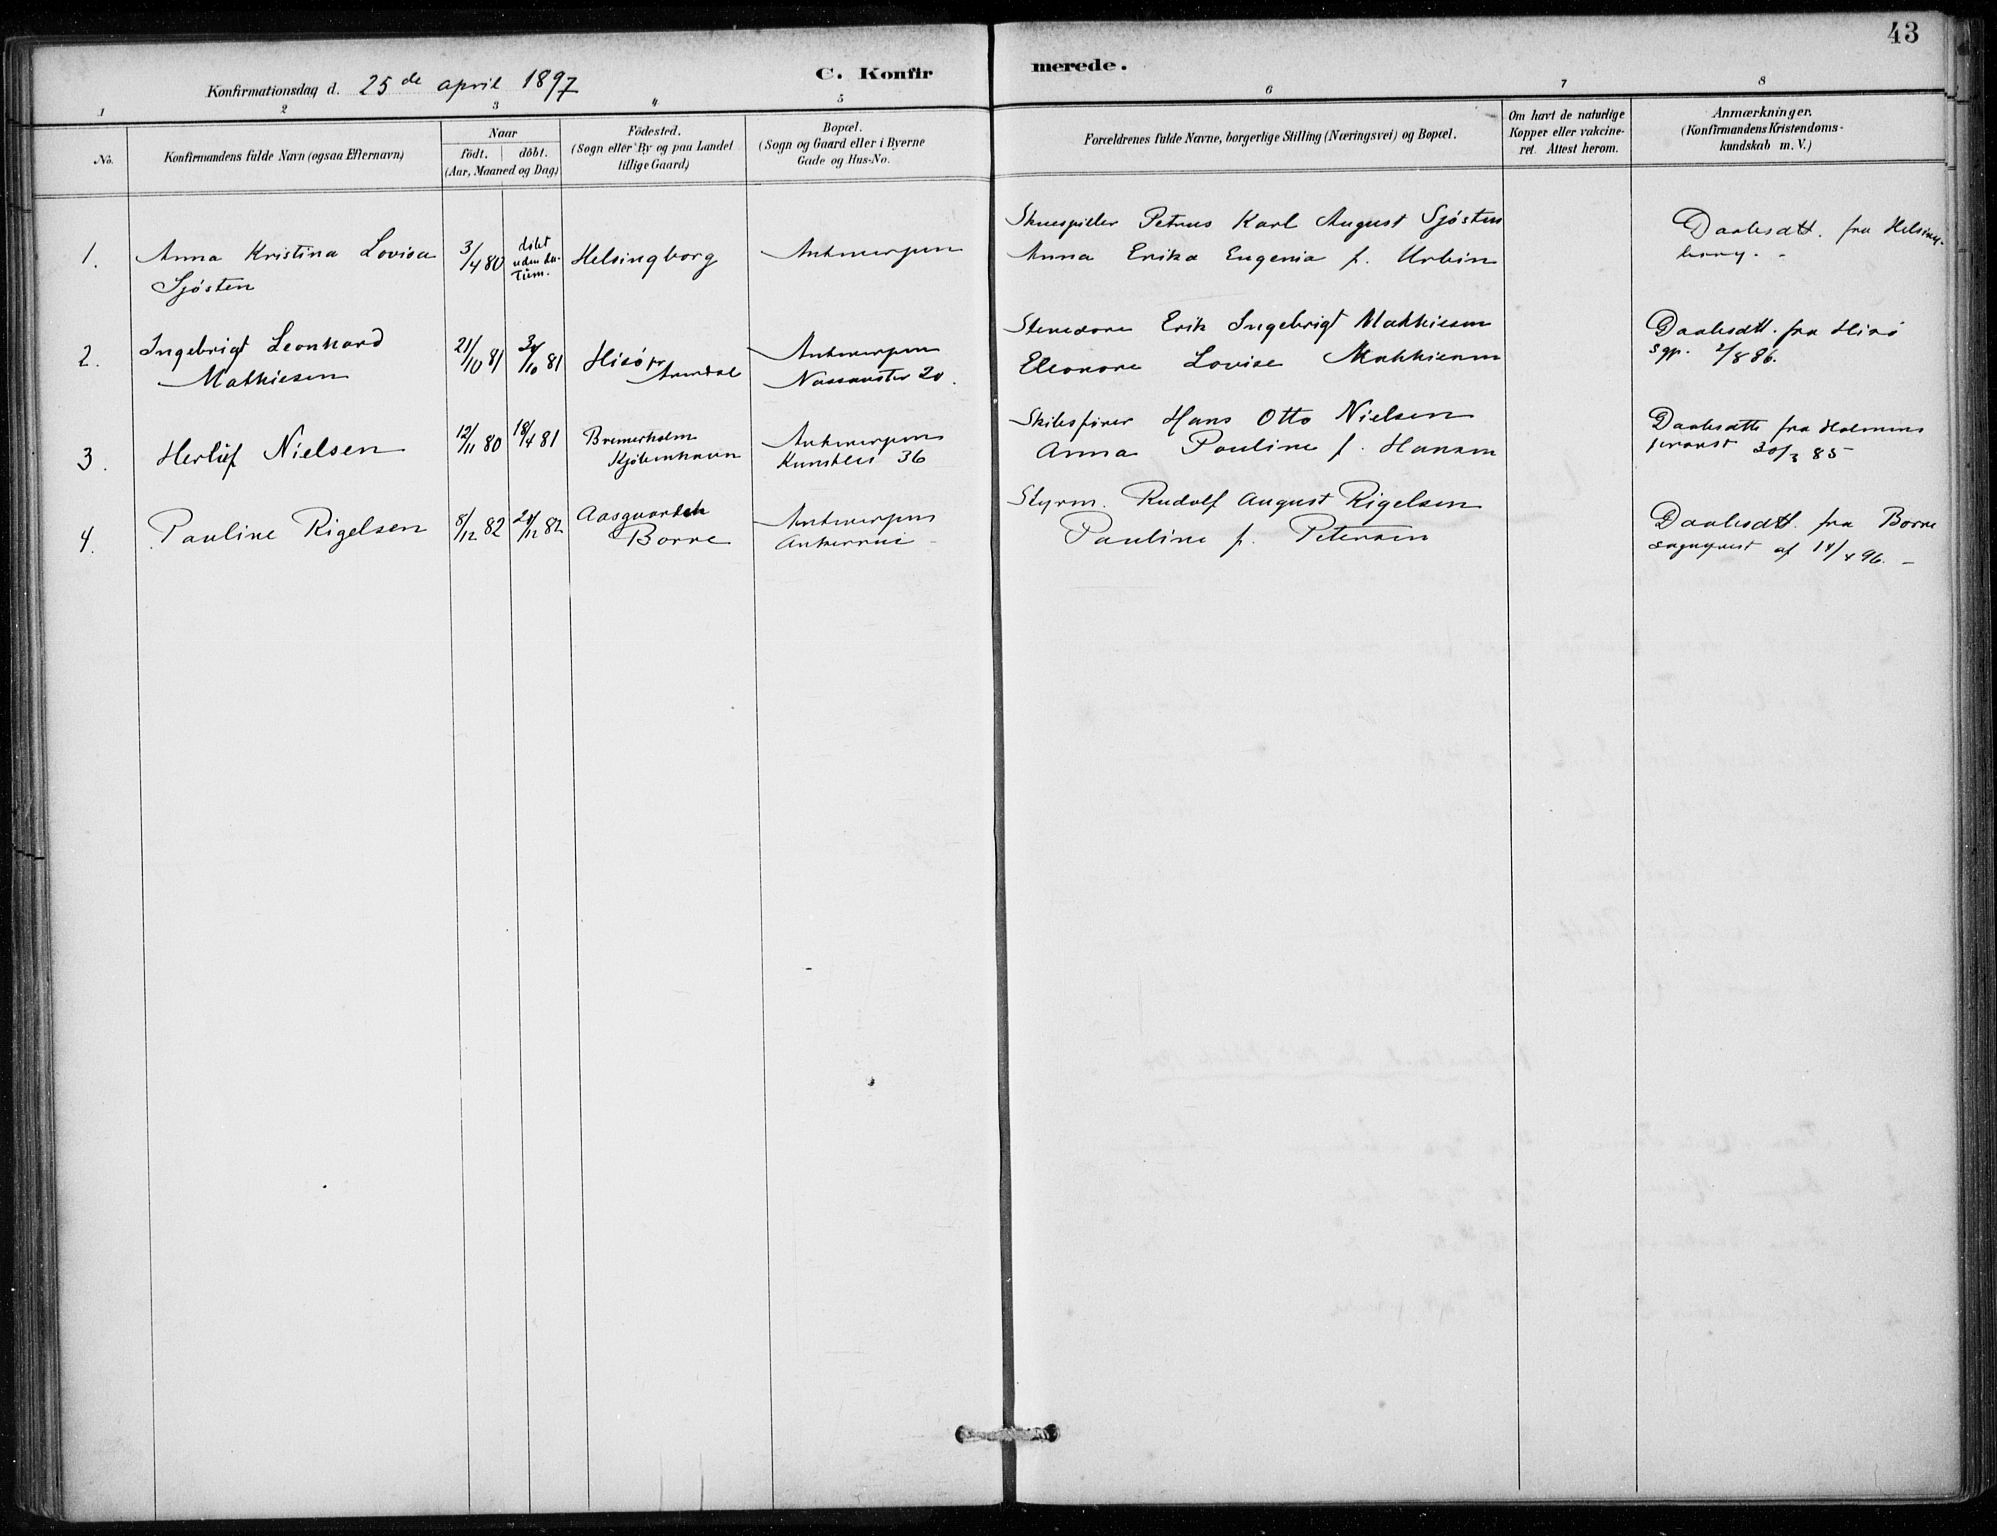 43
C. Konfirmerede.
Konfirmationsdag d. 25de april 1897
1 2 3 4 5 6 7 8
No.
Konfirmandens fulde Navn (ogsaa Efternavn)
Naar
födt. | döbt.
(Aar, Maaned og Dag)
Födested.
(Sogn eller By og paa Landet
tillige Gaard)
Bopæl.
(Sogn og Gaard eller i Byerne
Gade og Hus-No.
Forældrenes fulde Navne, borgerlige Stilling (Næringsvei) og Bopæl.
Om havt de naturlige
Kopper eller vakcine-
ret. Attest herom.
Anmærkninger.
(Konfirmandens Kristendoms-
kundskab m. V.)
1. Anna Kristina Lovisa
Sjösten
3/4 80
döbt
uden da-
tum.
Helsingborg
Antwerpen
Skuespiller Petrus Karl August Sjösten
Anna Erika Eugenia f. Urbin
Daabsatt. fra Helsing-
borg.
2. Ingebrigt Leonhard
Mathiesen
21/10 81
/10 81
Hisö pr
Arendal
Antwerpen
Nassaustr 20.
Stevedore Erik Ingebrigt Mathiesen
Eleonore Lovise Mathiesen
Daabsatt. fra Hisö
sgp. 2/8 86.
3. Herluf Nielsen
12/11 80
18/4 81
Bremerholm
Kjöbenhavn
Antwerpen
Kunstlei 36
Skibsförer Hans Otto Nielsen
Anna Pauline f. Hansen
Daabsatt. fra Holmens
provst 30/3 85
4. Pauline Rigelsen
8/12 82
24/12 82
Aasgaarden
Borre
Antwerpen
Ankerrui
Styrm. Rudolf August Rigelsen
Pauline f. Petersen
Daabsatt. fra Borre
sogneprest af 14/4 96.